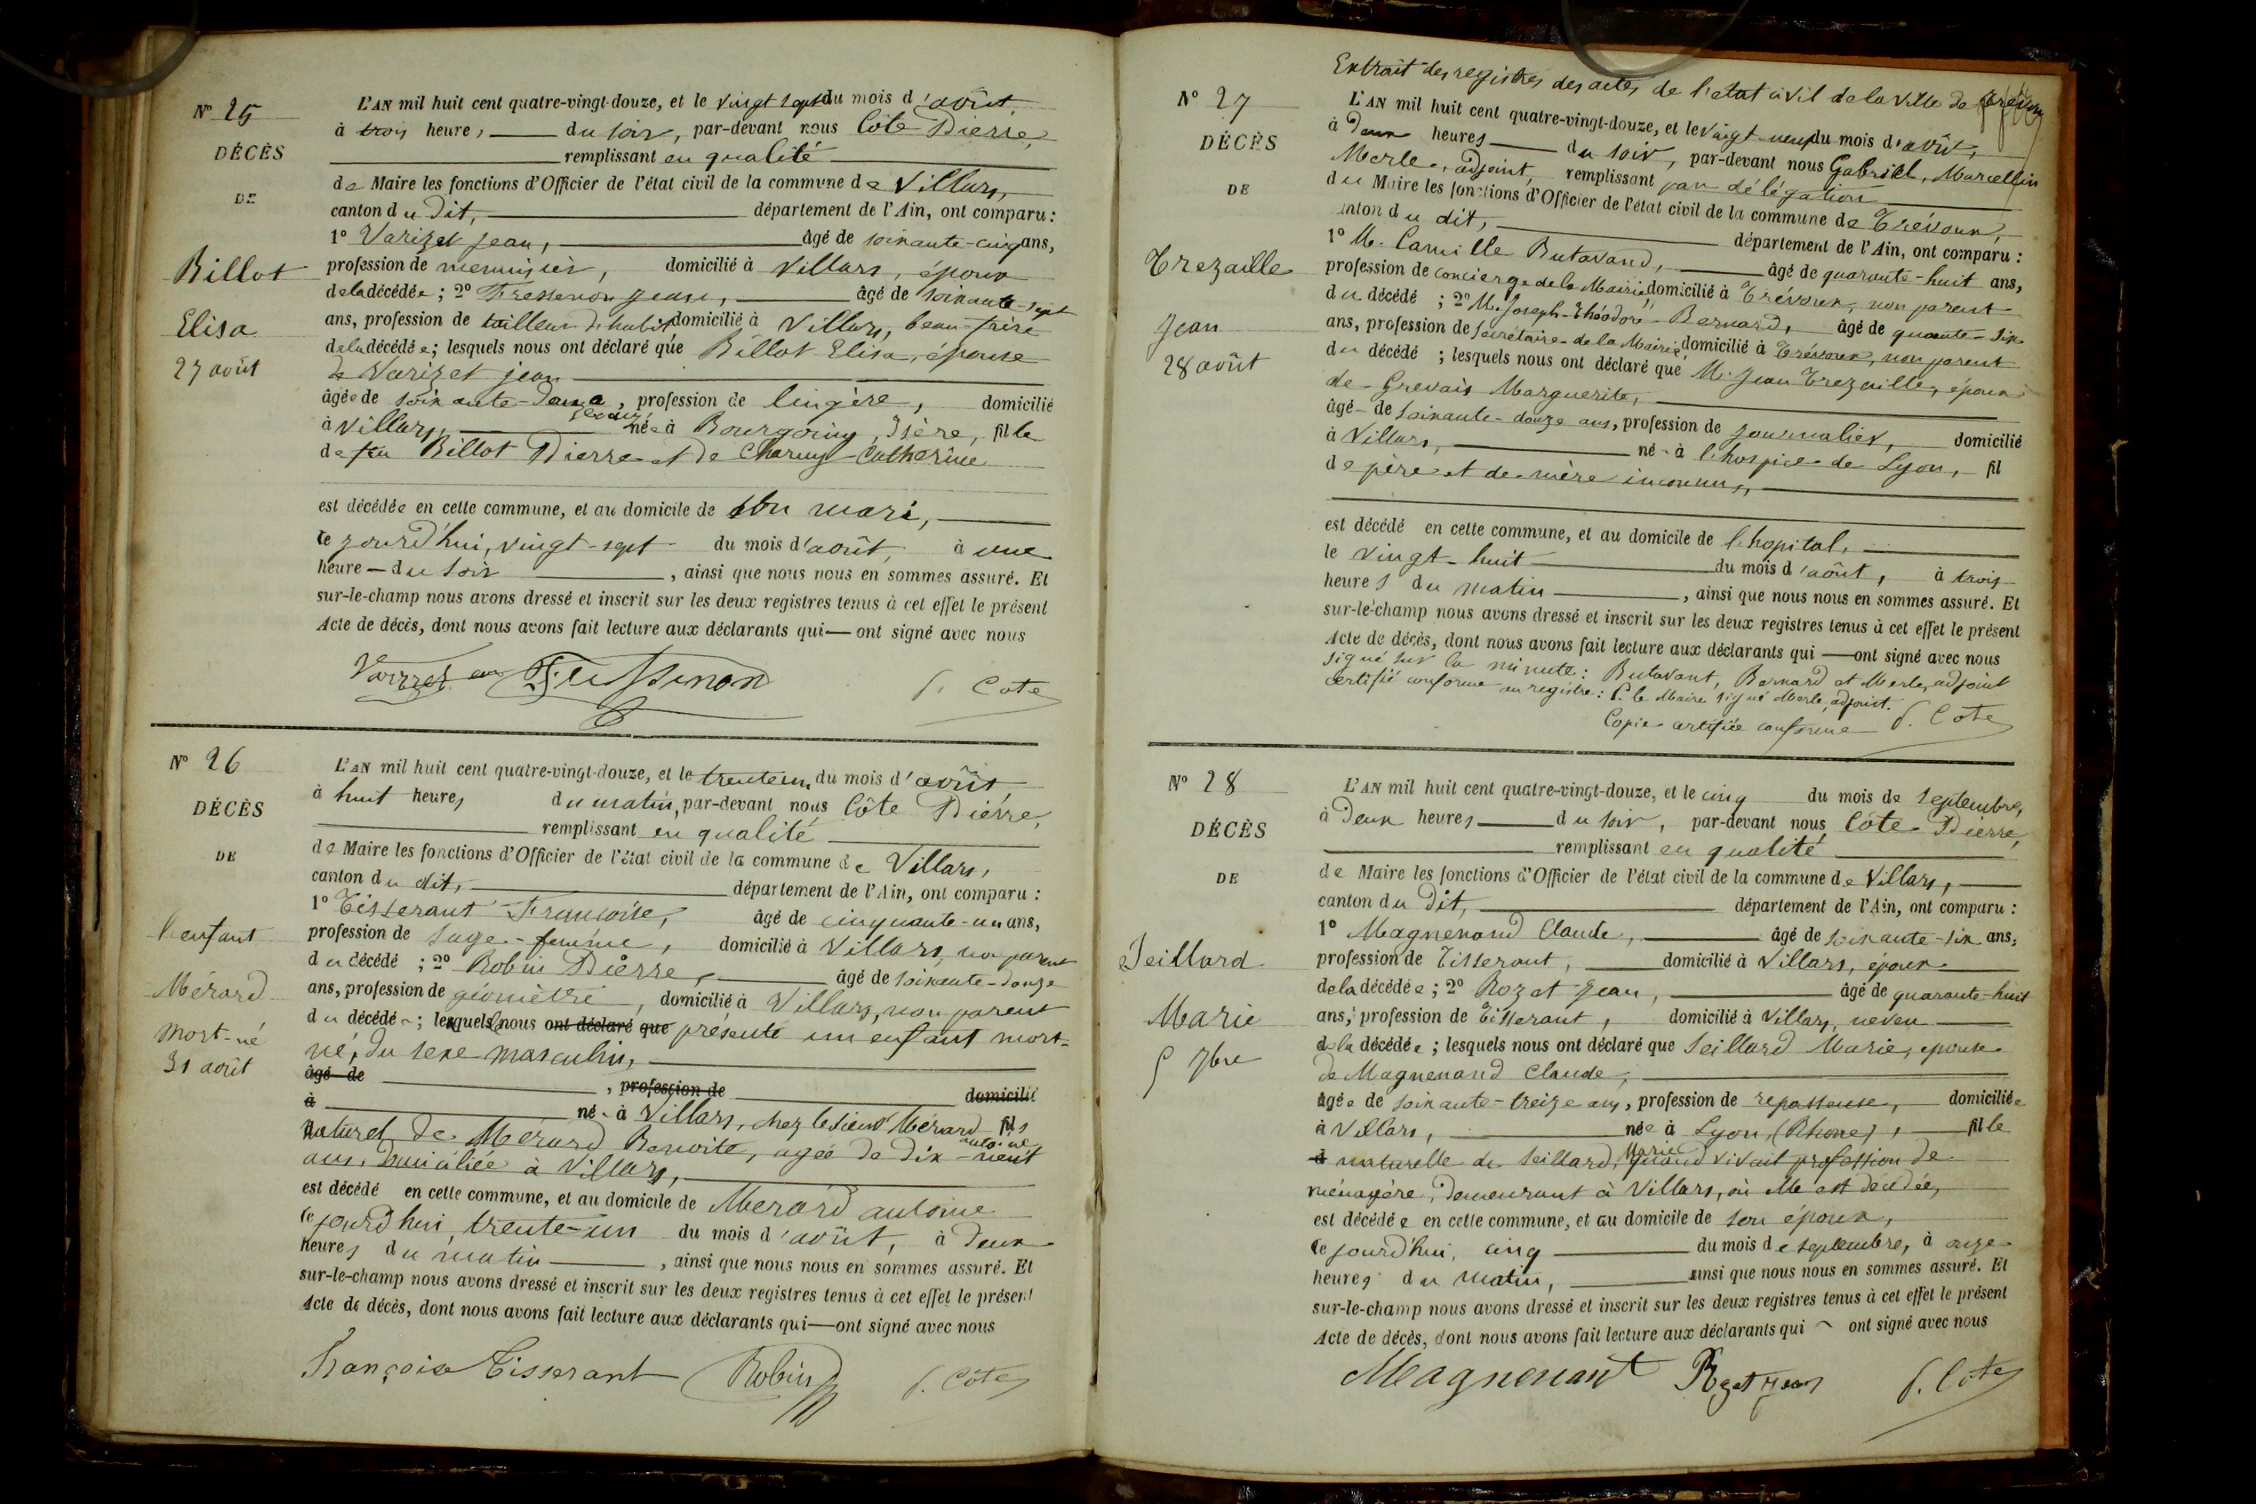 N° 25
DÉCÈS
DE
Billot
Elisa
27 août
L'AN mil huit cent quatre-vingt-douze, et le vingt sept du mois d'août
à trois heures, du soir, par-devant nous Côte Pierre,
remplissant en qualité
de Maire les fonctions d'Officier de l'état civil de la commune de Villars,
canton du dit, département de l'Ain, ont comparu :
1° Varizet Jean, âgé de soixante-cinq ans,
profession de menuisier, domicilié à Villars, époux
de la décédée ; 2° Fressenon Jean, âgé de soixante-sept
ans, profession de tailleur d'habit domicilié à Villars, beau-frère
de la décédée ; lesquels nous ont déclaré que Billot Elisa, épouse
de Varizet Jean
âgée de soixante-deux, profession de lingère, domicilié
à Villars, née à Bourgoing, Isère, fille
de feu Billot Pierre et de Charuy Catherine
est décédée en cette commune, et au domicile de son mari,
ce jourd'hui, vingt-sept du mois d'août, à une
heure du soir, ainsi que nous nous en sommes assuré. Et
sur-le-champ nous avons dressé et inscrit sur les deux registres tenus à cet effet le présent
Acte de décès, dont nous avons fait lecture aux déclarants qui — ont signé avec nous
P. Cote
N° 26
DÉCÈS
DE
l'enfant
Mérard
mort-né
31 août
L'AN mil huit cent quatre-vingt-douze, et le trente un du mois d'août
à huit heures du matin, par-devant nous Côte Pierre,
remplissant en qualité
de Maire les fonctions d'Officier de l'état civil de la commune de Villars,
canton du dit, département de l'Ain, ont comparu :
1° Tisserant Françoise, âgé de cinquante-un ans,
profession de sage-femme, domicilié à Villars, non parent
du décédé ; 2° Robin Pierre, âgé de soixante-douze
ans, profession de géomètre, domicilié à Villars, non parent
du décédé ; lesquels nous ont déclaré que présenté un enfant mort-
né, du sexe masculin,
âgé de , profession de domicilié
à né à Villars, chez le sieur Mérard fils
antoine
naturel de Mérard Benoite, agée de dix-neuf
ans, domiciliée à Villars,
est décédé en cette commune, et au domicile de Mérard antoine
ce jourd'hui, trente-un du mois d'août, à deux
heures du matin, ainsi que nous nous en sommes assuré. Et
sur-le-champ nous avons dressé et inscrit sur les deux registres tenus à cet effet le présent
Acte de décès, dont nous avons fait lecture aux déclarants qui — ont signé avec nous
Françoise Tisserant Robin P. Côte
Extrait des registres des actes de l'état civil de la ville de Trévoux
N° 27
DÉCÈS
DE
Trezaille
Jean
28 août
L'AN mil huit cent quatre-vingt-douze, et le vingt-neuf du mois d'août,
à deux heures du soir, par-devant nous Gabriel, Marcellin
Merle, adjoint, remplissant par délégation
du Maire les fonctions d'Officier de l'état civil de la commune de Trévoux,
canton du dit, département de l'Ain, ont comparu :
1° M. Camille Butavand, âgé de quarante-huit ans,
profession de concierge de la Mairie, domicilié à Trévoux, non parent
du décédé ; 2° M. Joseph-Théodore Bernard, âgé de quarante-six
ans, profession de secrétaire de la Mairie, domicilié à Trévoux, non parent
du décédé ; lesquels nous ont déclaré que M. Jean Trezaille, époux
de Grevais Marguerite,
âgé de soixante-douze ans, profession de journalier, domicilié
à Villars, né à l'hospice de Lyon, fil
de père et de mère inconnus,
est décédé en cette commune, et au domicile de l'hopital,
le vingt-huit du mois d'août, à trois
heures du matin, ainsi que nous nous en sommes assuré. Et
sur-le-champ nous avons dressé et inscrit sur les deux registres tenus à cet effet le présent
Acte de décès, dont nous avons fait lecture aux déclarants qui — ont signé avec nous
signé sur la minute : Butavant, Bernard et Merle, adjoint
certifié conforme au registre : P. le Maire signé Merle, adjoint.
Copie certifiée conforme P. Cote
N° 28
DÉCÈS
DE
Seillard
Marie
5 7bre
L'AN mil huit cent quatre-vingt-douze, et le cinq du mois de septembre,
à deux heures du soir, par-devant nous Côte Pierre,
remplissant en qualité
de Maire les fonctions d'Officier de l'état civil de la commune de Villars,
canton du dit, département de l'Ain, ont comparu :
1° Magnenand Claude, âgé de soixante-six ans,
profession de Tisserant, domicilié à Villars, époux
de la décédée ; 2° Rozat Jean, âgé de quarante-huit
ans, profession de Tisserant, domicilié à Villars, neveu
de la décédée ; lesquels nous ont déclaré que Seillard Marie, epouse
de Magnenand Claude,
âgée de soixante-treize ans, profession de repasseuse, domiciliée
à Villars, née à Lyon, (Rhone), fille
Marie
naturelle de Seillard, quand vivait profession de
ménagère, demeurant à Villars, où elle est décédée,
est décédée en cette commune, et au domicile de son époux,
ce jourd'hui, cinq du mois de septembre, à onze
heures du matin, ainsi que nous nous en sommes assuré. Et
sur-le-champ nous avons dressé et inscrit sur les deux registres tenus à cet effet le présent
Acte de décès, dont nous avons fait lecture aux déclarants qui ont signé avec nous
Magnenant Rozat Jean P. Cote